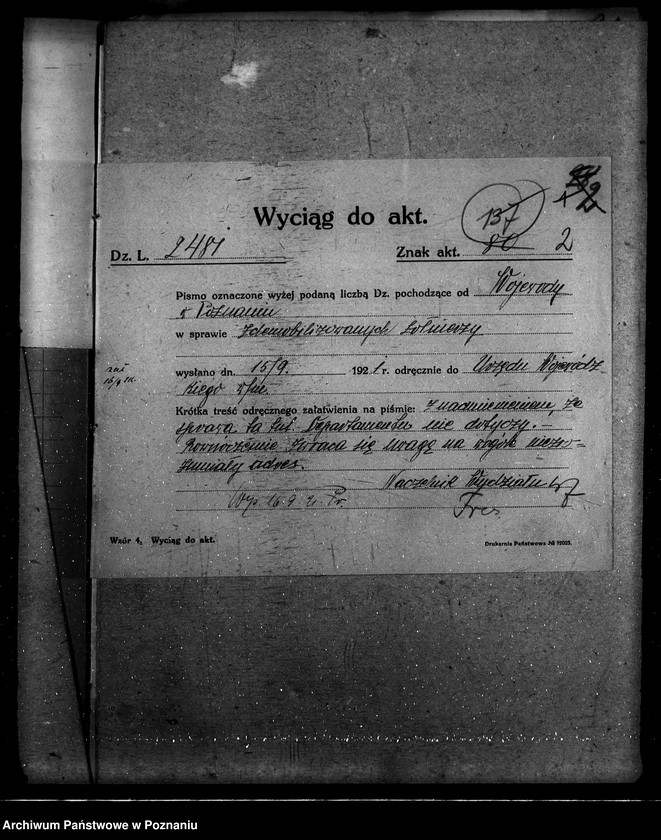 137
2
Wyciąg do akt.
Dz. L. 2481
Znak akt. 80 2
Pismo oznaczone wyżej podaną liczbą Dz. pochodzące od Wojewody
w Poznaniu
w sprawie zdemobilizowanych żołnierzy
wysłano dn. 15/9. 1921 r. odręcznie do Urzędu Wojewódz-
kiego w/m.
15/9
Krótka treść odręcznego załatwienia na piśmie: z nadmienieniem, że
sprawa ta tut. Departamentu nie dotyczy. –
Równocześnie zwraca się uwagę na wogóle niezro-
zumiały adres.
Naczelnik Wydziału
Wyp. 16.9 21.
Wzór 4. Wyciąg do akt.
Drukarnia Państwowa №
Archiwum Państwowe w Poznaniu